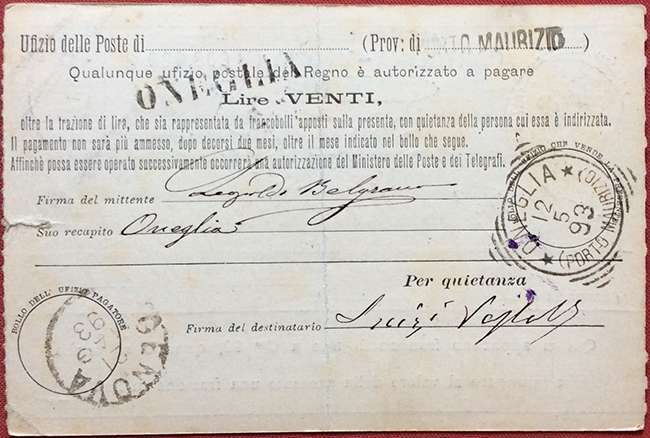 Ufizio delle Poste di ONEGLIA (Prov: di PORTO MAURIZIO)
Qualunque ufizio postale del Regno è autorizzato a pagare
Lire VENTI,
oltre la frazione di lire, che sia rappresentata da francobolli apposti sulla presente, con quietanza della persona cui essa è indirizzata.
Il pagamento non sarà più ammesso, dopo decorsi due mesi, oltre il mese indicato nel bollo che segue.
Affinchè possa essere operato successivamente occorrerà una autorizzazione del Ministero delle Poste e dei Telegrafi.
BOLLO DELL' UFIZIO CHE VENDE LA
ONEGLIA
(PORTO MAURIZIO)
12
5
93
Firma del mittente Leopoldo Belgrano
Suo recapito Oneglia
Per quietanza
Firma del destinatario Luigi
BOLLO DELL' UFIZIO PAGATORE
GENOVA
93